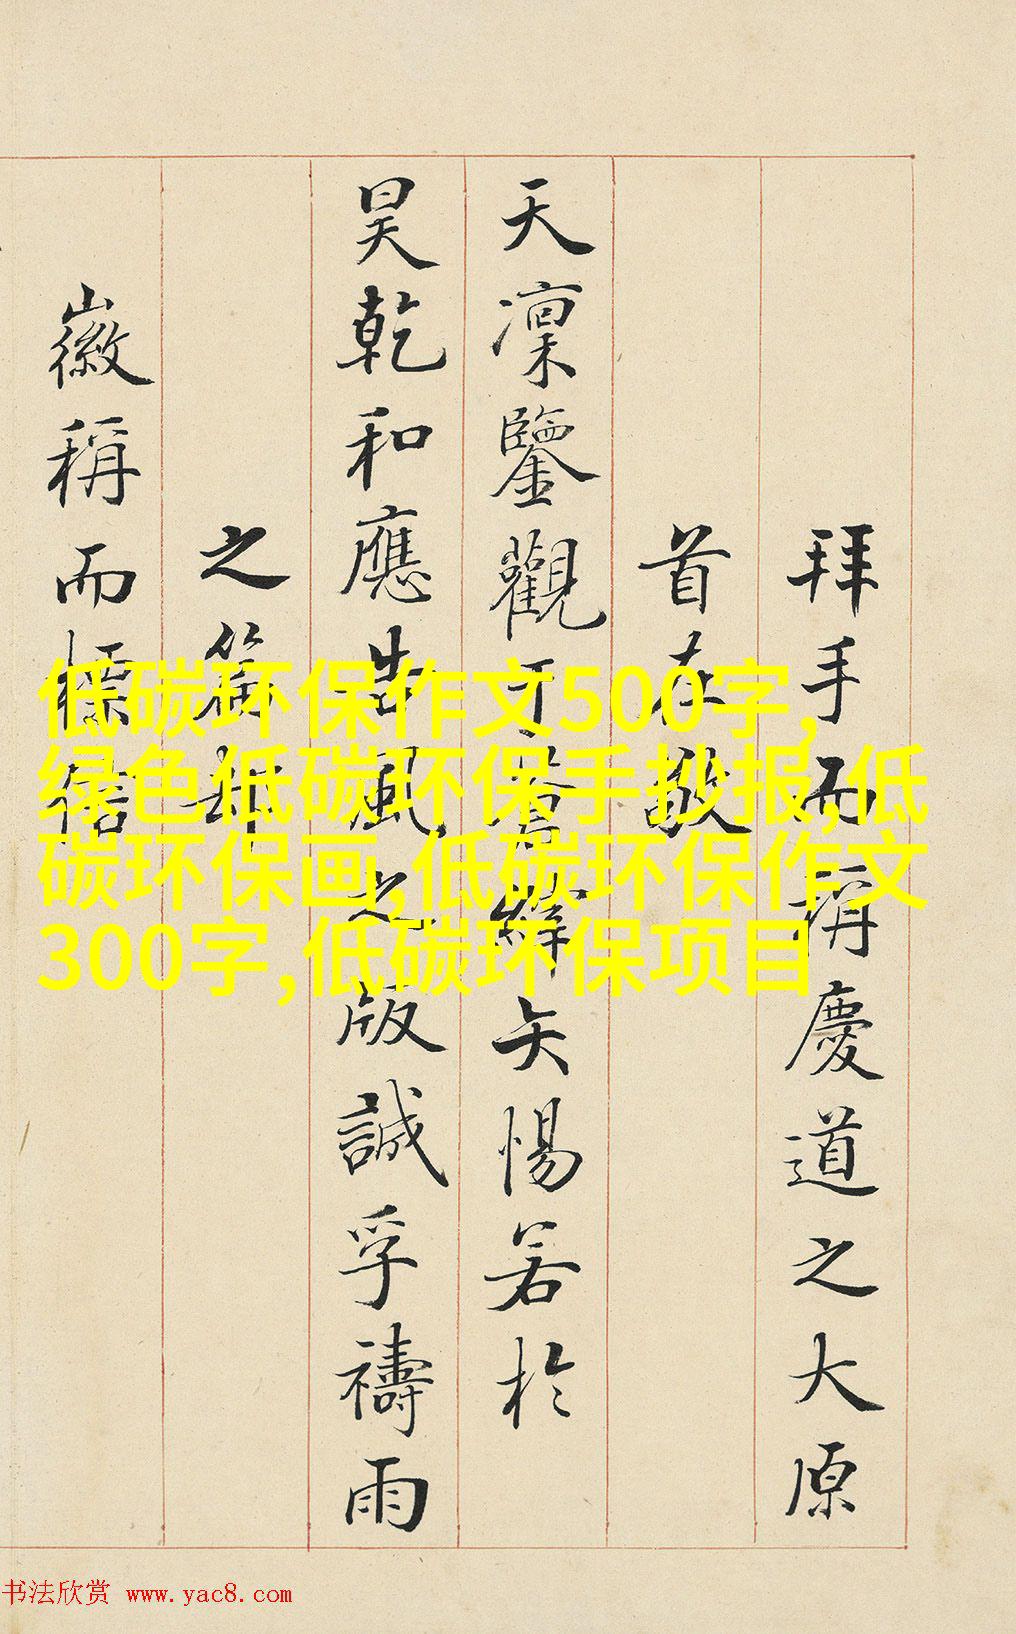 拜手而稱慶道之大原
首在敬
天凜鑒觀於矢惕若於
昊乾和應風之版誠孚禱雨
之
徽稱而標
低碳环保作文500字,
绿色低碳环保手抄报,低
碳环保画,低碳环保作文
300字,低碳环保项目
书法欣赏 www.yac8.com